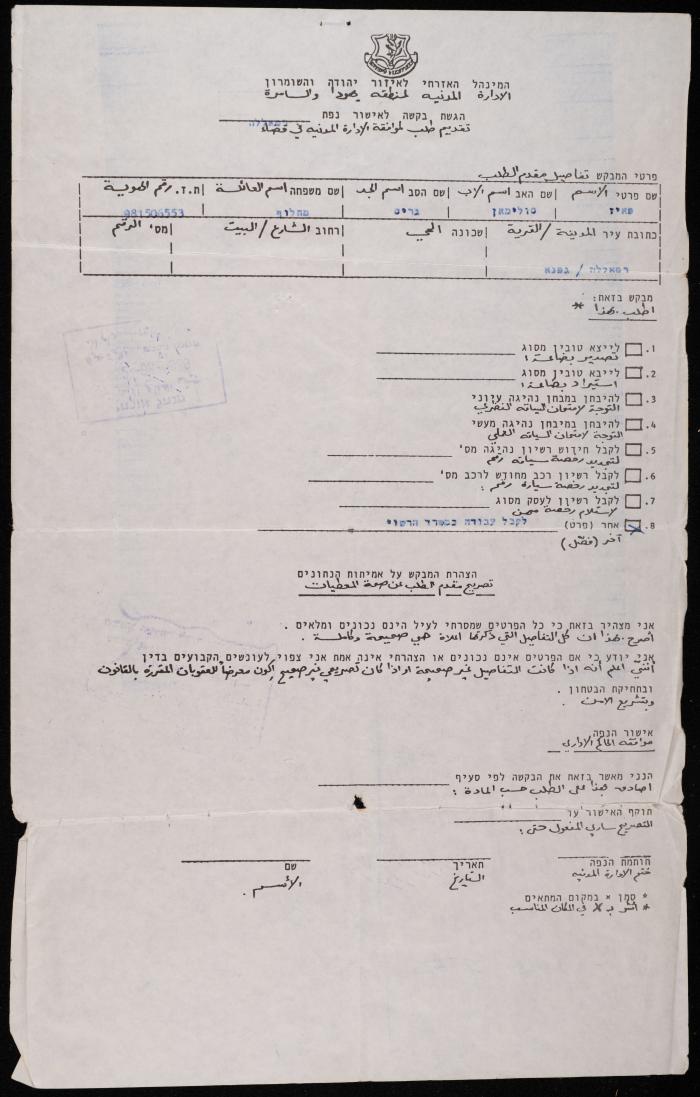 המינהל האזרחי לאיזור יהודה והשומרון
الادارة المدنية لمنطقة يهودا والسامرة
הגשת בקשה לאישור נפת
تقديم طلب لموافقة الادارة المدنية في قضاء
פרטי המבקש تفاصيل مقدم الطلب
שם פרטי الاسم שם האב اسم الاب שם הסב اسم الجد שם משפחה اسم العائلة ת.ז. رقم الهوية
פאיז סולימאן מחלוף 981506553
כתובת עיר المدينة/القرية שכונה الحي רחוב الشارع/البيت מס' الرقم
רמאללה /
מבקש בזאת:
اطلب بهذا *
1. לייצא טובין מסוג
تصدير بضاعة:
2. לייבא טובין מסוג
استيراد بضاعة:
3. להיבחן במבחן נהיגה עיוני
التوجة لامتحان السياقه النظري
4. להיבחן במיבחן נהיגה מעשי
التوجة لامتحان السياقه العملي
5. לקבל חידוש רשיון נהיגה מס'
لتجديد رخصة سياقه رقم
6. לקבל רשיון רכב מחודש לרכב מס'
لتجديد رخصة سيارة رقم:
7. לקבל רשיון לעסק מסוג
لاستلام رخصة مهن
8. אחר (פרט) לקבל עבודה במשרד הרשוי
آخر (فصّل)
הצהרת המבקש על אמיתות הנתונים
تصريح مقدم الطلب عن صحة المعطيات
אני מצהיר בזאת כי כל הפרטים שמסרתי לעיל הינם נכונים ומלאים .
اصرح بهذا ان كل التفاصيل التي ذكرتها اعلاة هي صحيحة وكاملة .
אני יודע כי אם הפרטים אינם נכונים או הצהרתי אינה אמת אני צפוי לעונשים הקבועים בדין
أنني اعلم أنه اذا كانت التفاصيل غير صحيحة او اذا كان تصريحي غير صحيح اكون معرضاً للعقوبات المقررة بالقانون
ובתחיקת הבטחון .
وبتشريع الامن .
אישור הנפה
موافقة الحاكم الاداري
הנני מאשר בזאת את הבקשה לפי סעיף
اصادق بهذا على الطلب حسب المادة:
תוקף האישור עד
التصريح ساري المفعول حتى:
חותמת הנפה תאריך שם
ختم الادارة المدنيه التاريخ الأسم .
* סמן × במקום המתאים
* أشر بـ × في المكان المناسب